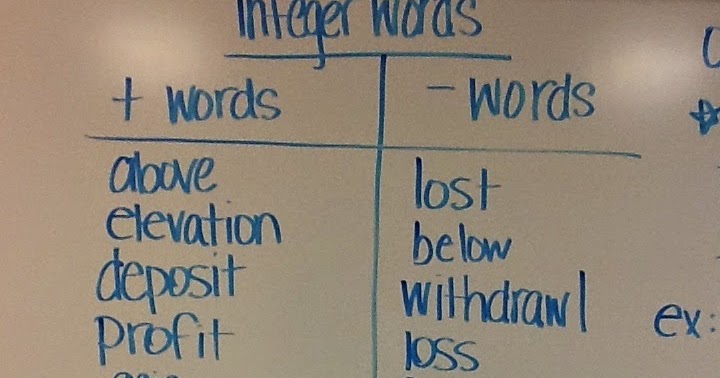 Integer Words
+ words
- words
above
elevation
deposit
profit
lost
below
withdrawl
loss
ex: